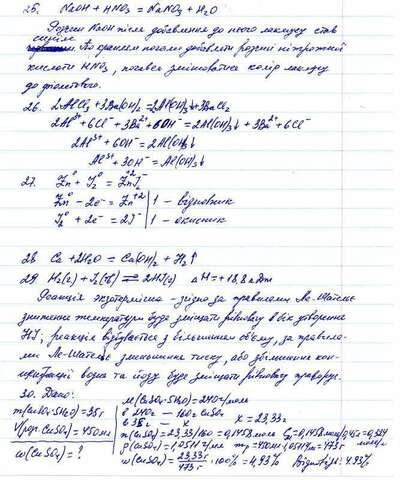 25. NaOH + HNO₃ = NaNO₃ + H₂O
Розчин NaOH після добавлення до нього лакмусу став
синім. По краплям почали добавляти розчин нітратної
кислоти HNO₃, почався змінюватись колір лакмусу
до фіолетового.
26. 2AlCl₃ + 3Ba(OH)₂ = 2Al(OH)₃↓ + 3BaCl₂
2Al³⁺ + 6Cl⁻ + 3Ba²⁺ + 6OH⁻ = 2Al(OH)₃↓ + 3Ba²⁺ + 6Cl⁻
2Al³⁺ + 6OH⁻ = 2Al(OH)₃↓
Al³⁺ + 3OH⁻ = Al(OH)₃↓
27. Zn⁰ + I₂⁰ = Zn⁺²I₂⁻
Zn⁰ − 2e⁻ = Zn⁺² | 1 – відновник
I₂⁰ + 2e⁻ = 2I⁻ | 1 – окисник
28. Ca + 2H₂O = Ca(OH)₂ + H₂↑
29. H₂(г) + I₂(тв) ⇄ 2HI(г) ΔH = +18,8 кДж
Реакція екзотермісна – згідно за правилами Ле-Шательє
зниження температури буде зміщати рівновагу в бік утворення
HI; реакція відбувається з більшенням об'єму, за правила-
ми Ле-Шательє зменшення тиску, або збільшення кон-
центрації водню та йоду буде зміщати рівновагу праворуч.
30. Дано:
m(CuSO₄·5H₂O) = 35г
V(роз. CuSO₄) = 450мл
w(CuSO₄) = ?
M(CuSO₄·5H₂O) = 240г/моль
в 240г – 160г CuSO₄
в 35г – x x = 23,33г
n(CuSO₄) = 23,33/160 = 0,1458 моль
w(CuSO₄) = 23,33г/473г · 100% = 4,93% Відповідь: 4.93%